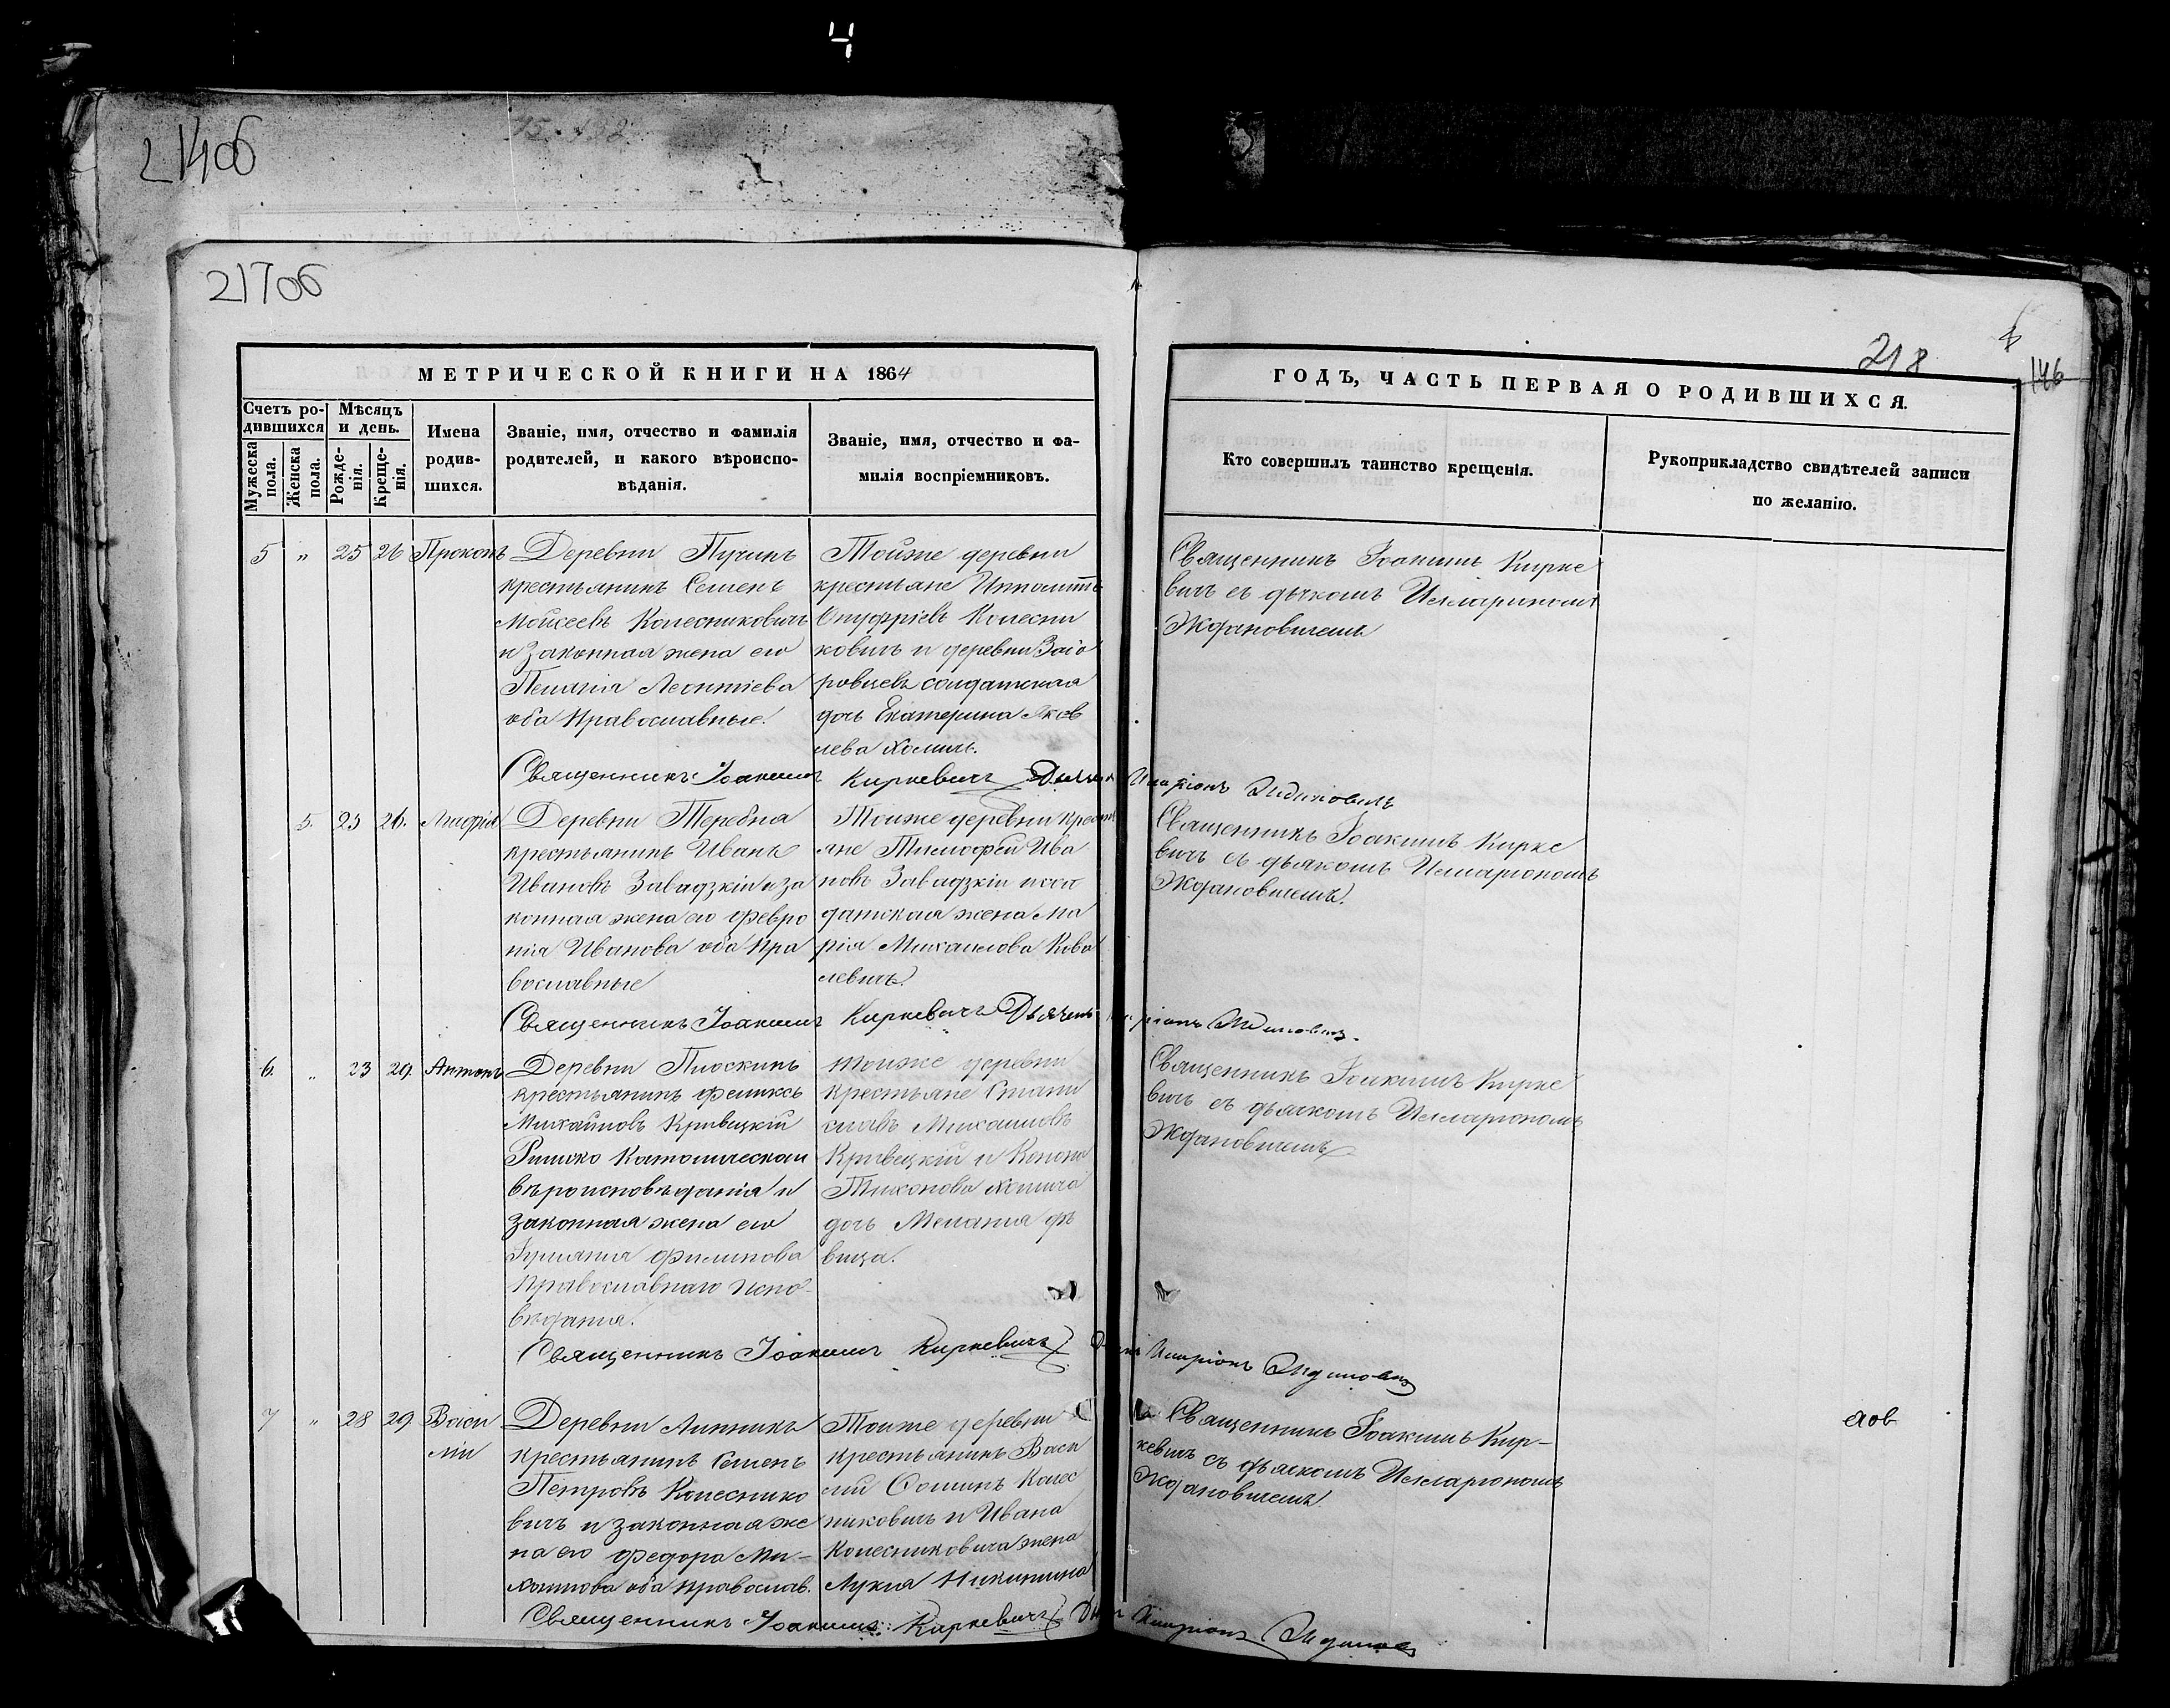 Ч
21406
21706
218
146
МЕТРИЧЕСКОЙ КНИГИ НА 1864
ГОДЪ, ЧАСТЬ ПЕРВАЯ О РОДИВШИХСЯ.
Счетъ ро-
дившихся
Мужеска пола.
Женска пола.
Мѣсяцъ
и день.
Рожде-
нія.
Креще-
нія.
Имена
родив-
шихся.
Званіе, имя, отчество и фамилія
родителей, и какого вѣроиспо-
вѣданія.
Званіе, имя, отчество и фа-
милія воспріемниковъ.
Кто совершилъ таинство крещенія.
Рукоприкладство свидѣтелей записи
по желанію.
5 „ 25 26 Прокопъ
Деревни Пучинъ
крестьянинъ Семенъ
Моисеевъ Колесниковичъ
и законная жена его
Пелагія Леонтіева
оба православные.
Тойже деревни
крестьяне Ипполитъ
Онуфріевъ Колесни
ковичъ и деревни
солдатская
дочь Екатерина Яков
лева Хомичъ.
Священникъ Іоакимъ Кирке
вичъ съ дьякомъ Илларіономъ
Ждановичемъ
Священникъ Іоакимъ Киркевичъ
5. 23 26.
Деревни Теребна
крестьянинъ Иванъ
Ивановъ Завадзкій и за
конная жена его Февро
нія Иванова оба пра
вославные
Тойже деревни крестья
яне Тимофей Ива
новъ Завадзкій и сол
датская жена Ма
рія Михаилова Кова
левичъ.
Священникъ Іоакимъ Кирке
вичъ съ дьякомъ Илларіономъ
Ждановичемъ.
Священникъ Іоакимъ Киркевичъ Дьячекъ
6. „ 23 29. Антонъ
Деревни Плоскинъ
крестьянинъ Феликсъ
Михайловъ Кривецкій
Римско Католическаго
вѣроисповѣданія и
законная жена его
Іуліанія Филипова
православнаго испо-
вѣданія.
Тойже деревни
крестьяне Стани
славъ Михайловъ
Кривецкій и Конона
Тихонова Хомича
дочь Меланія дѣ
вица.
Священникъ Іоакимъ Кирке
вичъ съ дьякомъ Илларіономъ
Ждановичемъ
Священникъ Іоакимъ Киркевичъ
7 „ 28 29 Васи
лій
Деревни Липникъ
крестьянинъ Семенъ
Петровъ Колеснико
вичъ и законная же
на его Федора Ми-
хайлова оба православ.
Тойже деревни
крестьянинъ Васи
лій Фоминъ Колес
никовичъ и Ивана
Колесниковича жена
Лукія Никитина
Священникъ Іоакимъ Кир-
кевичъ съ дьякомъ Илларіономъ
Ждановичемъ
Священникъ Іоакимъ Киркевичъ